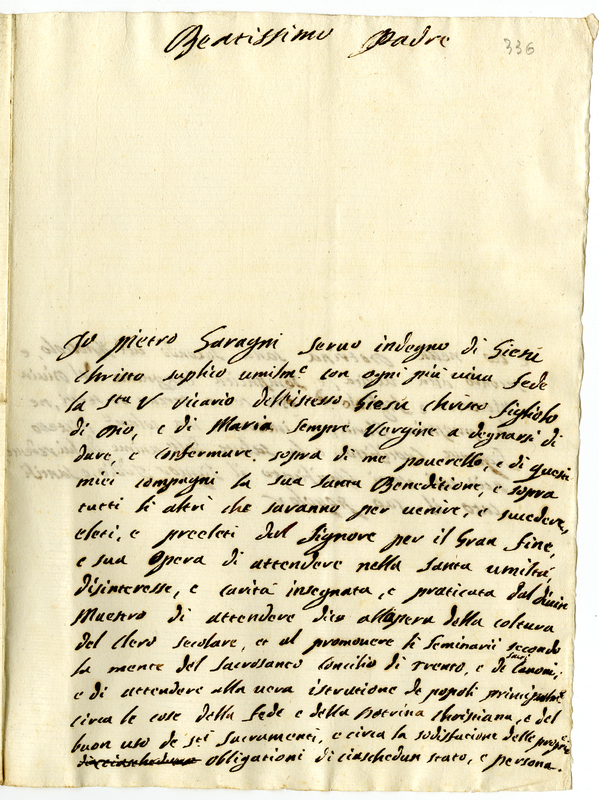 Beatissimo Padre
336
Io pietro Garagni servo indegno di Giesù
Christo suplico umilm.e con ogni più viva fede
la S.ta V vicario dell'istesso Giesù Christo figliolo
di Dio, e di Maria sempre Vergine a degnarsi di
dare, e confermare sopra di me poverello, e di questi
miei compagni la sua santa Beneditione, e sopra
tutti li altri che saranno per venire, e succedere,
eleti, e preeleti dal Signore per il Gran fine,
e sua Opera di attendere nella santa umiltà,
disinteresse, e carità insegnata, e praticata dal divin
Maestro di attendere dico all'opera della coltura
del Clero secolare, et al promovere li Seminarii secondo
la mente del Sacrosanto Concilio di Trento, e de sacri Canoni;
e di attendere alla vera istrutione de popoli principalm.e
circa le cose della fede e della Dotrina Christiana, e del
buon uso de s.ti Sacramenti, e circa la sodisfatione delle proprie
obligationi di ciaschedun stato, e persona.